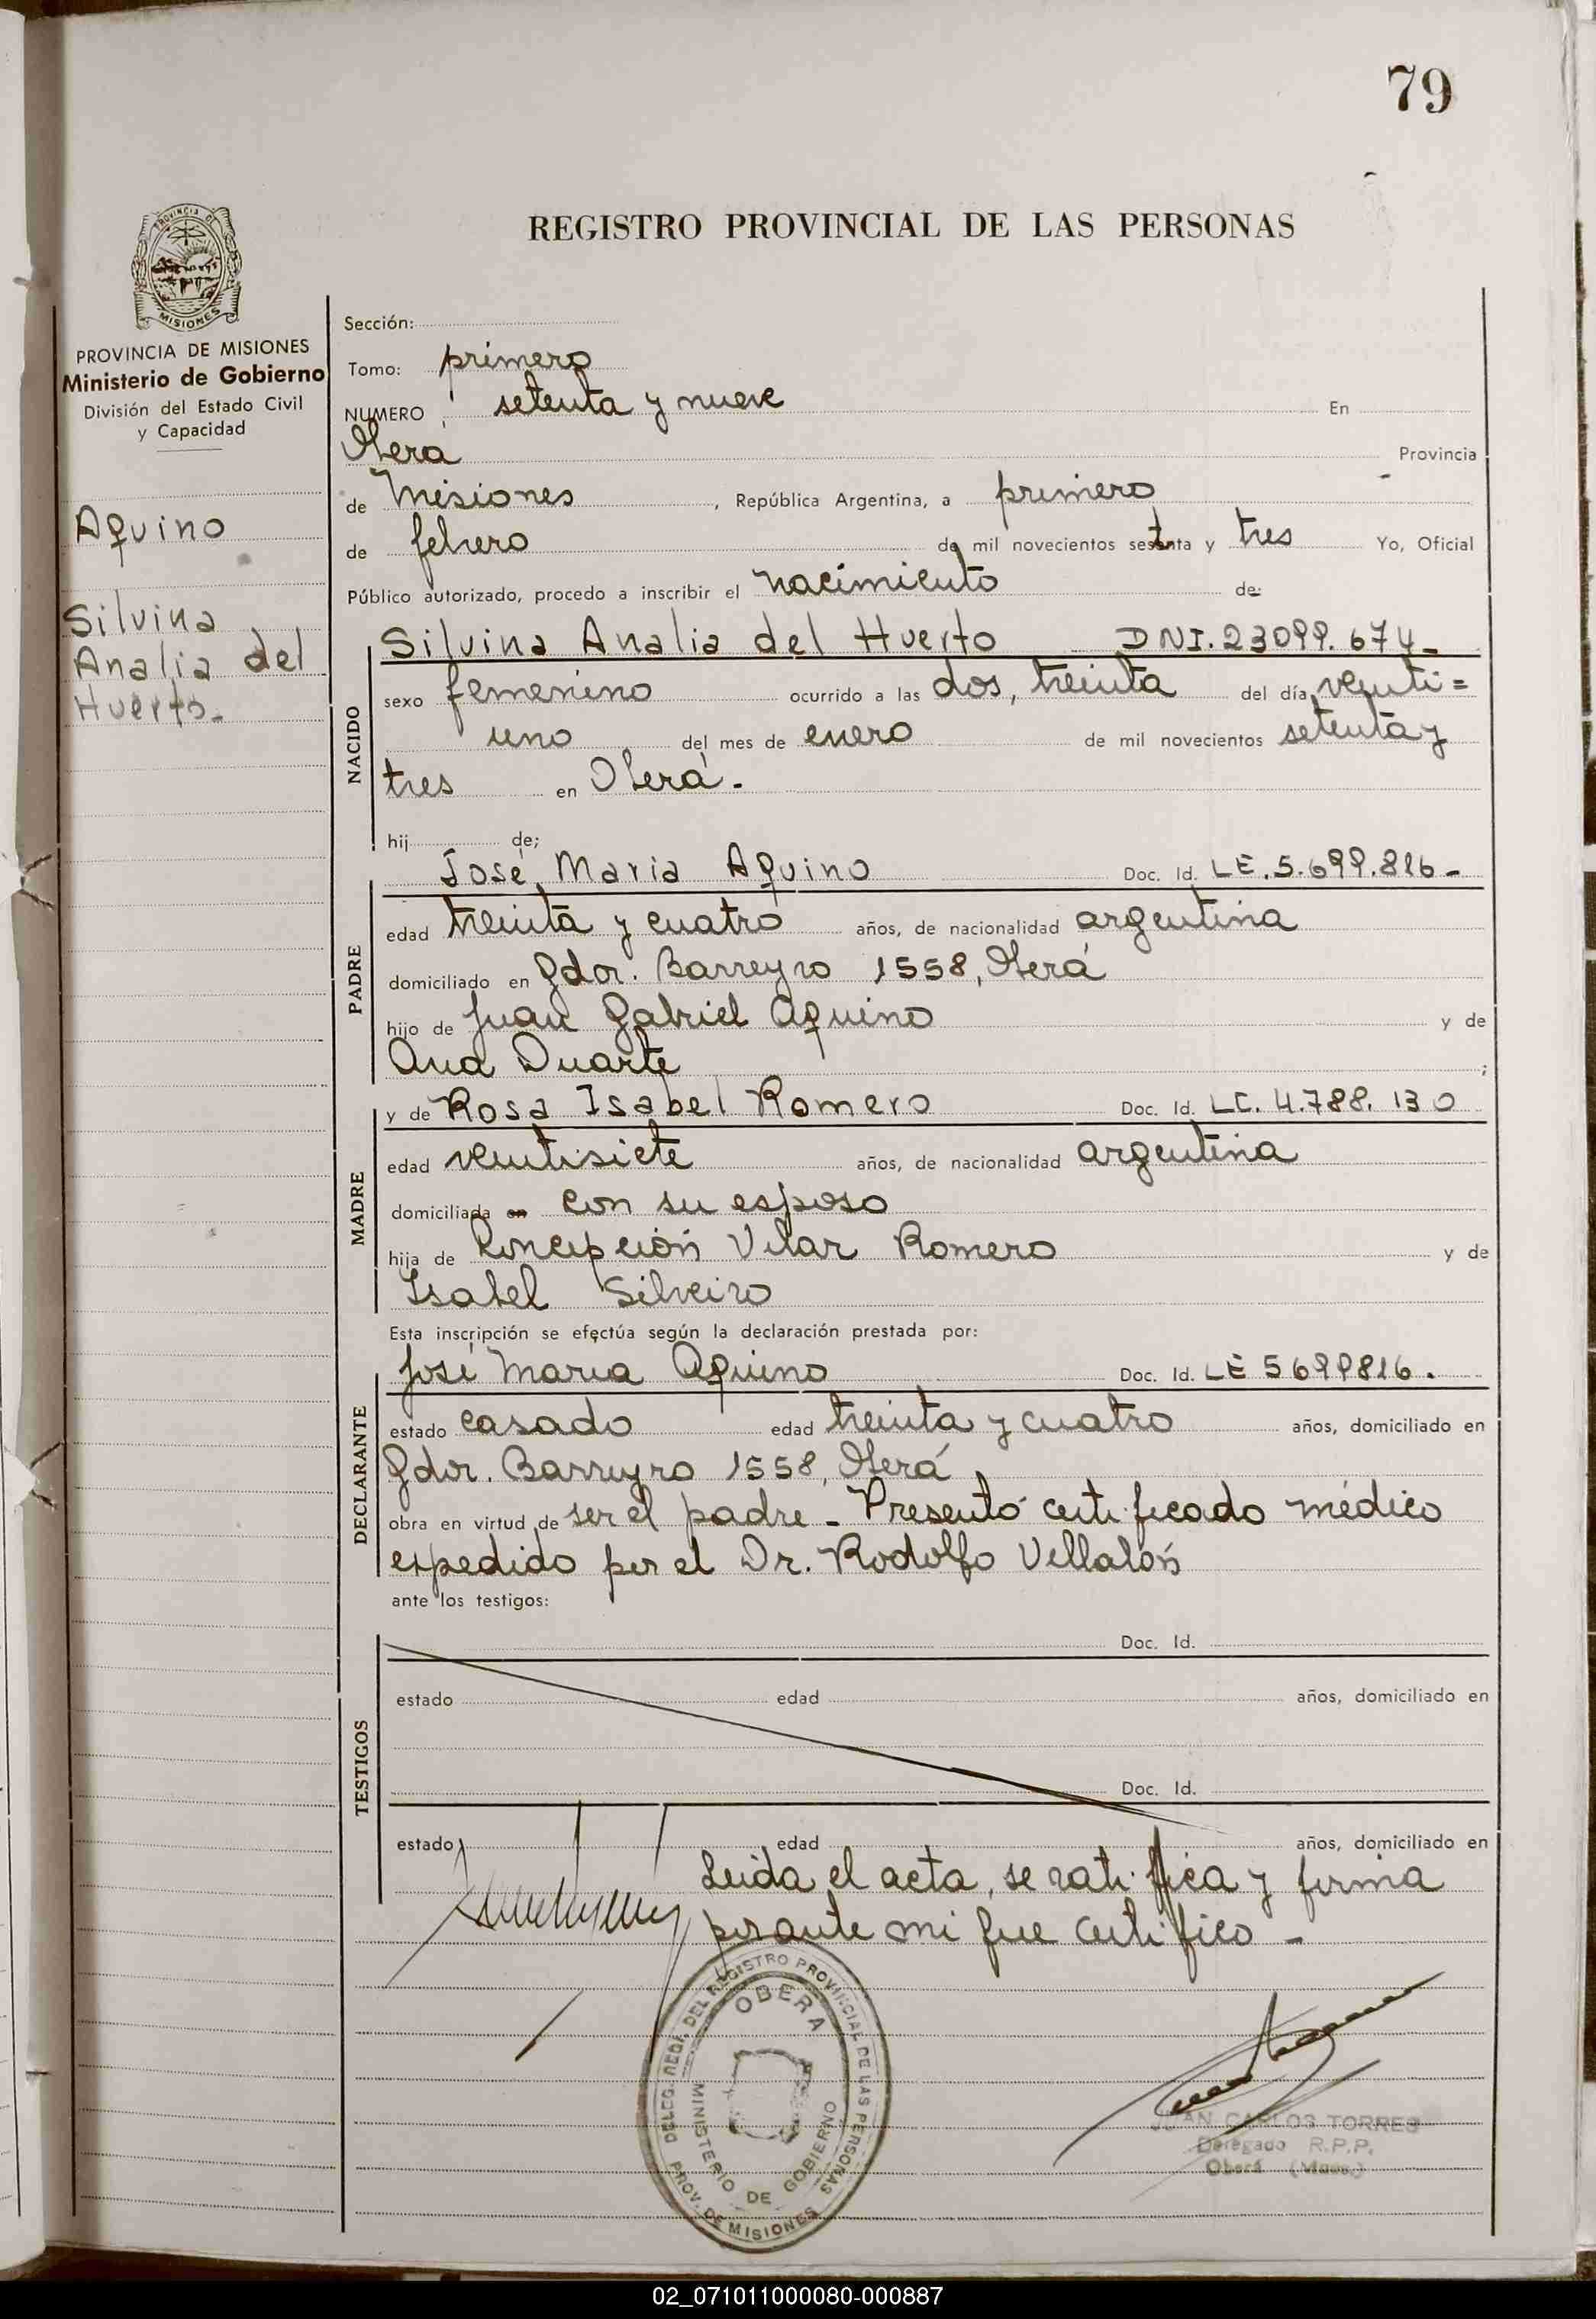 79
REGISTRO PROVINCIAL DE LAS PERSONAS
PROVINCIA DE MISIONES
PROVINCIA DE MISIONES
Ministerio de Gobierno
División del Estado Civil
y Capacidad
Aquino
Silvina
Analia del
Huerto.-
Sección:
Tomo: primero
NUMERO setenta y nueve En
Oberá Provincia
de Misiones, República Argentina, a primero
de febrero de mil novecientos setenta y tres Yo, Oficial
Público autorizado, procedo a inscribir el nacimiento de:
NACIDO
Silvina Analia del Huerto DNI.23099.674-
sexo femenino ocurrido a las dos, treinta del día venti=
uno del mes de enero de mil novecientos setenta y
tres en Oberá.
hij de;
PADRE
José Maria Aquino Doc. Id. LE.5.699.816-
edad treinta y cuatro años, de nacionalidad argentina
domiciliado en Gdor. Barreyro 1558, Oberá
hijo de Juan Gabriel Aquino y de
Ana Duarte ;
MADRE
y de Rosa Isabel Romero Doc. Id. LC. 4.788.130
edad ventisiete años, de nacionalidad argentina
domiciliada en con su esposo
hija de Concepción Vilar Romero y de
Isabel Silveiro
Esta inscripción se efectúa según la declaración prestada por:
DECLARANTE
José Maria Aquino Doc. Id. LE 5699816.
estado casado edad treinta y cuatro años, domiciliado en
Gdor. Barreyro 1558, Oberá
obra en virtud de ser el padre - Presentó certificado médico
expedido por el Dr. Rodolfo Villalón
ante los testigos:
TESTIGOS
Doc. Id.
estado edad años, domiciliado en
Doc. Id.
estado edad años, domiciliado en
Leida el acta, se ratifica y firma
por ante mi que certifico -
DELEG. REGI. DEL REGISTRO PROVINCIAL DE LAS PERSONAS
OBERA
MINISTERIO DE GOBIERNO
PROV. DE MISIONES
JUAN CARLOS TORRES
Delegado R.P.P.
Oberá (Mnes.)
02_071011000080-000887